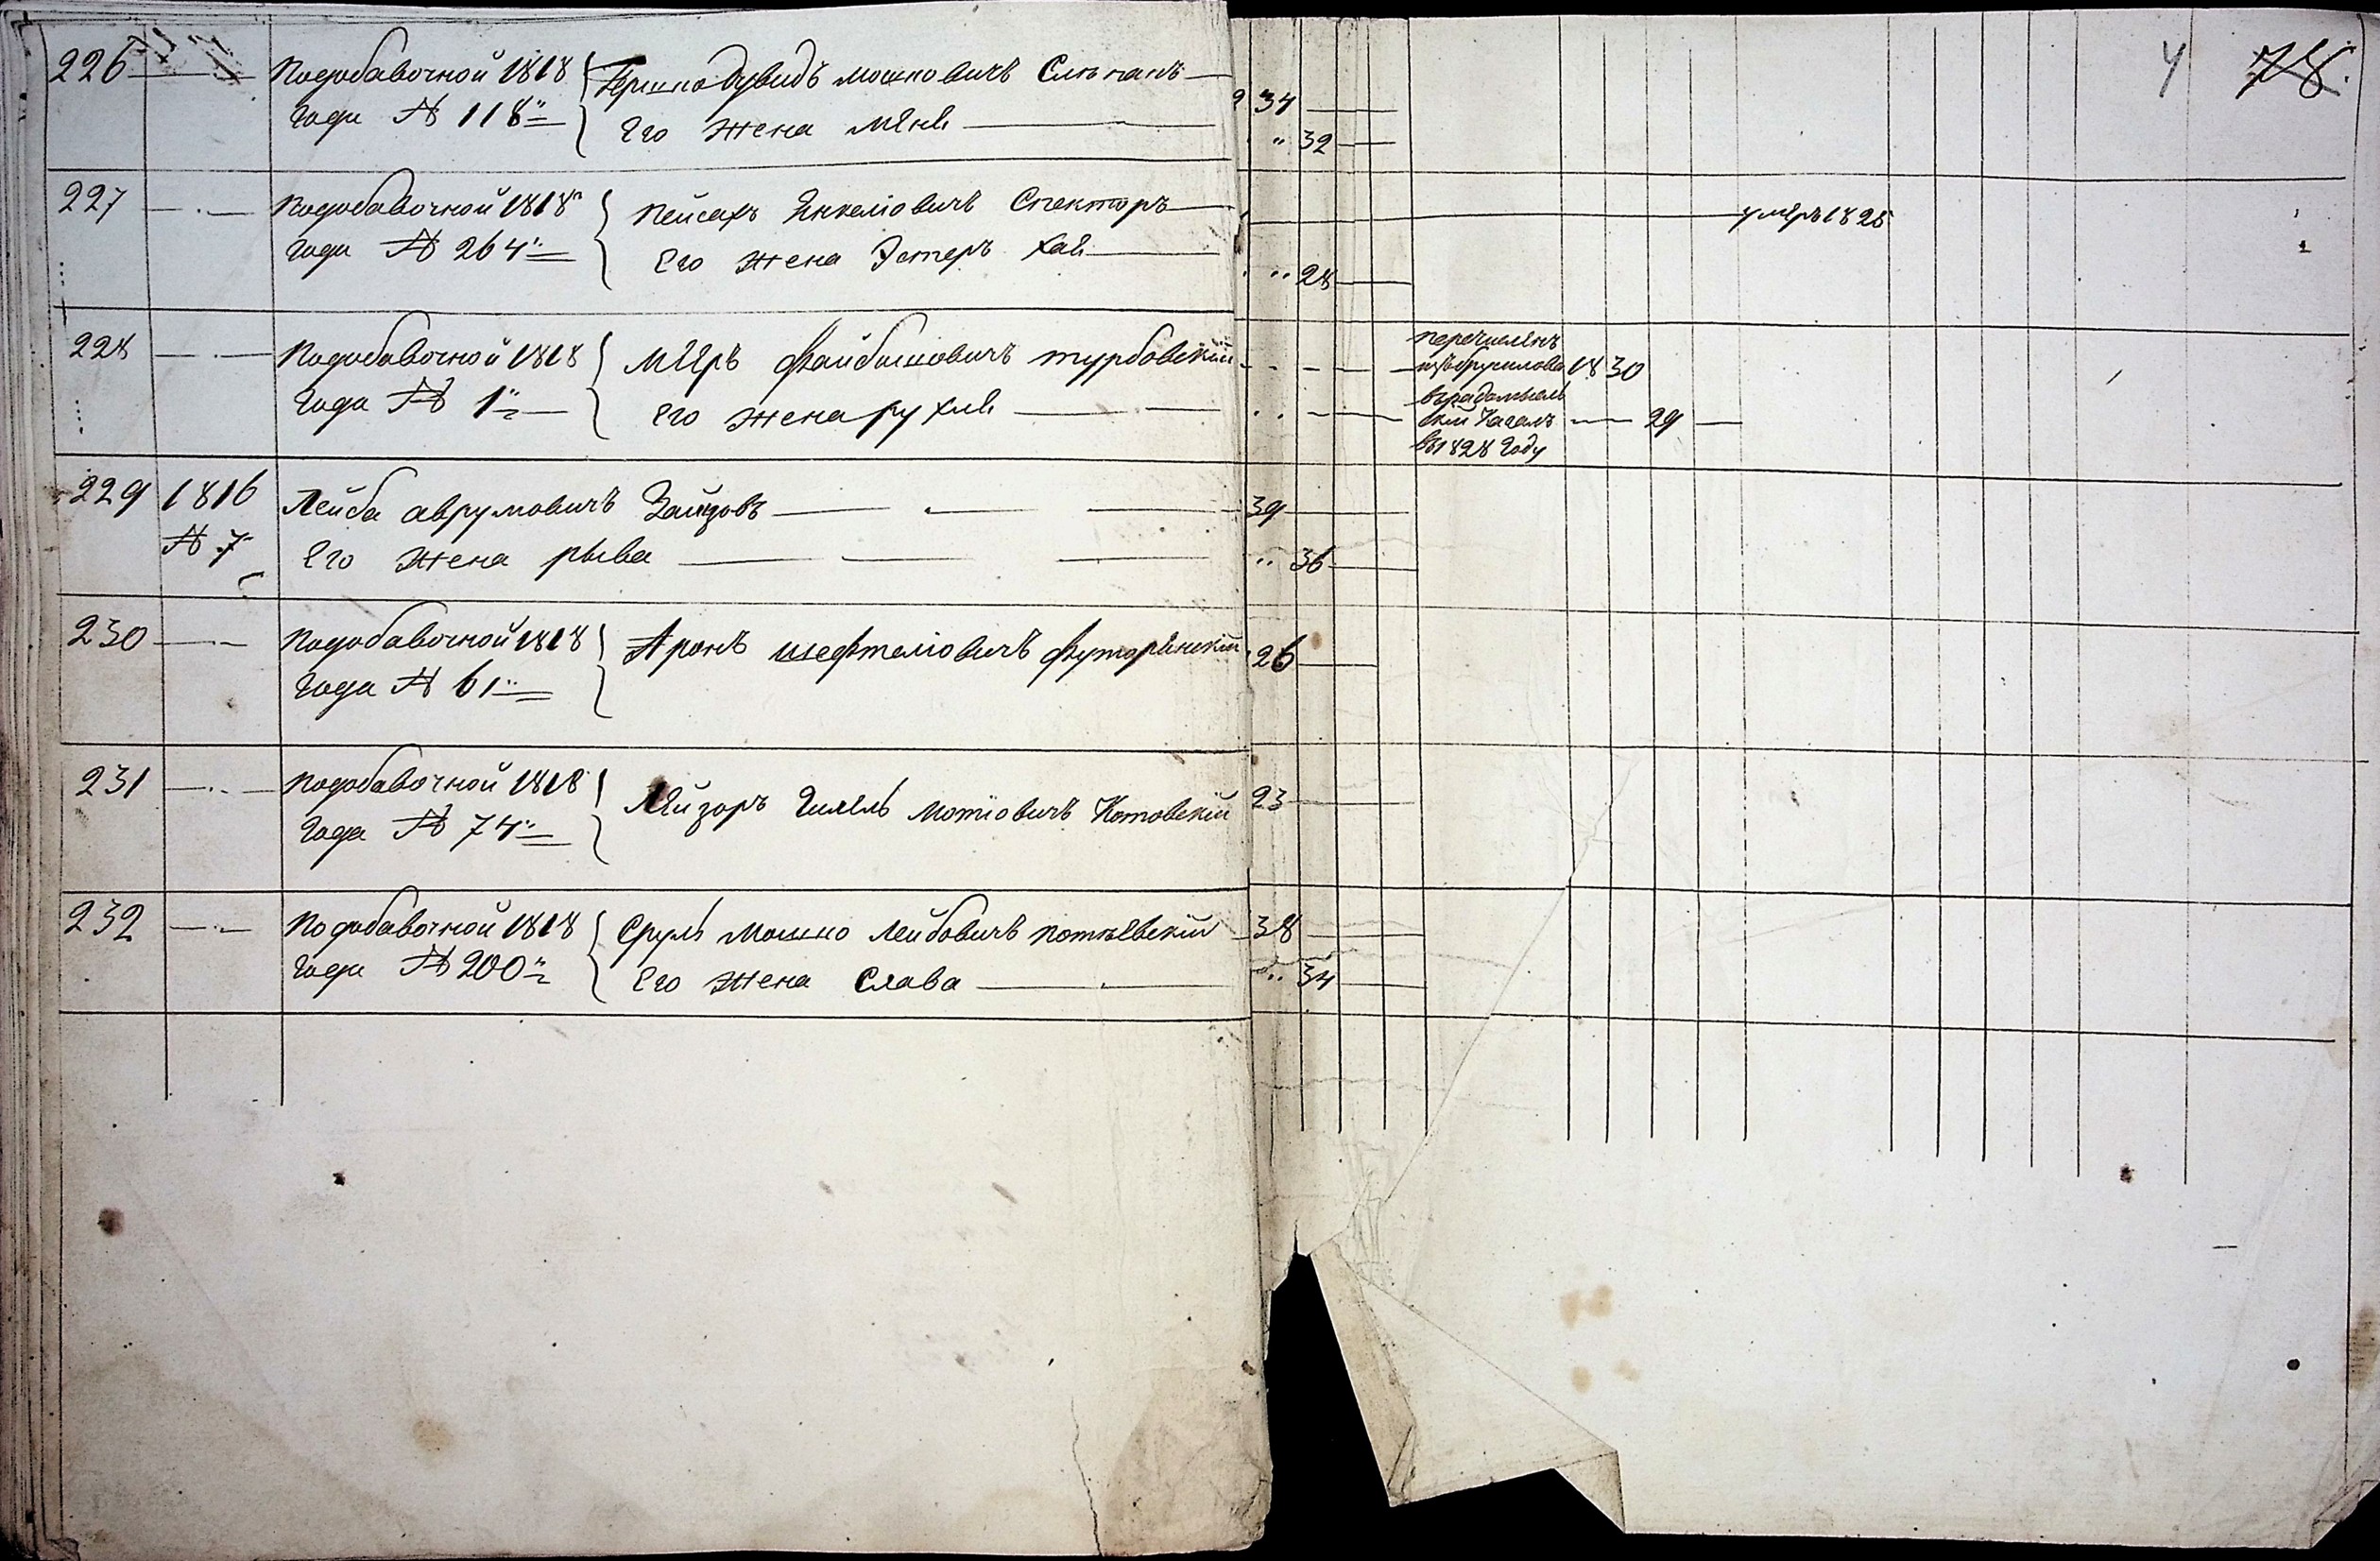 78.
226 Подобавочной 1818 Гершко дувидъ мошковичъ Слепакъ 34
Года № 118 Его жена мѣня 32
227 Подобавочной 1818 Пейсахъ Янкеліовичъ Спекторъ умеръ 1825
года № 264 Его жена Эстеръ хая 28
228 Подобавочной 1818 Мееръ Файбишовичъ турбовскій перечисленъ
Года № 1 Его жена рухля изъ брусилова 1830
въ радомысль
скій Кагалъ 29
въ 1828 году
229 1816 Лейба аврумовичъ Зайцовъ 39
№ 7 Его жена рыва 36
230 Подобавочной 1818 Аронъ шефтеліовичъ 26
Года № 61
231 Подобавочной 1818 Лейзоръ Гилель мотіовичъ Котовскій 23
Года № 74
232 Подобавочной 1818 Сруль Мошко Лейбовичъ потіевскій 38
Года № 200 Его жена Слава 34